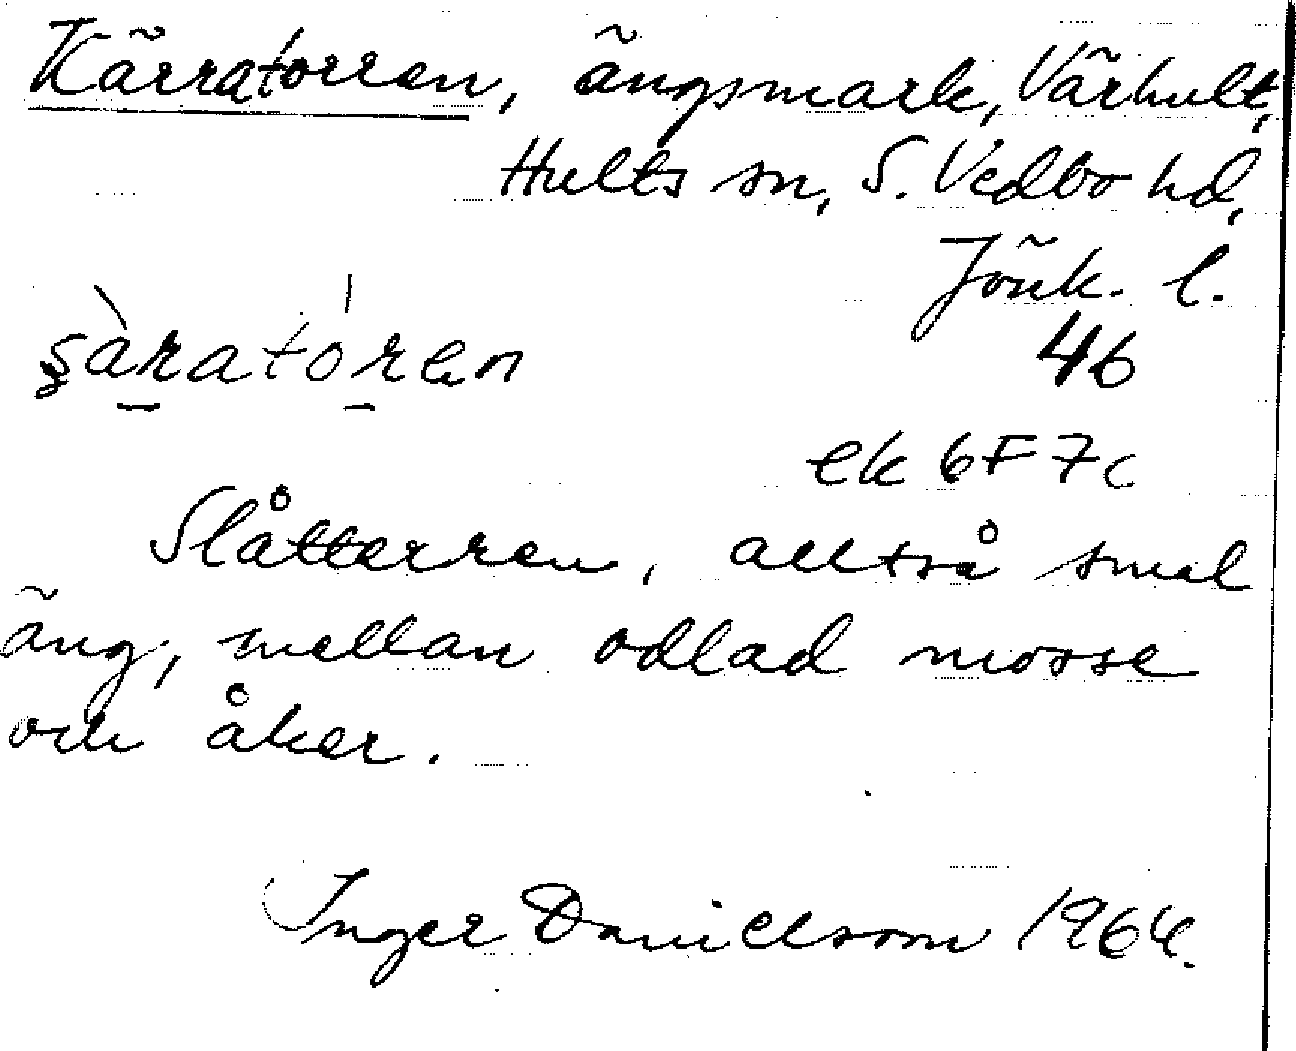 Kärratorren, ängsmark, Värhult,
Hults sn, S. Vedbo hd,
Jönk. l.
46
şàratóren
ek 6F7c
Slåtterren, alltså smal
äng, mellan odlad mosse
och åker.
Inger Danielsson 1964.